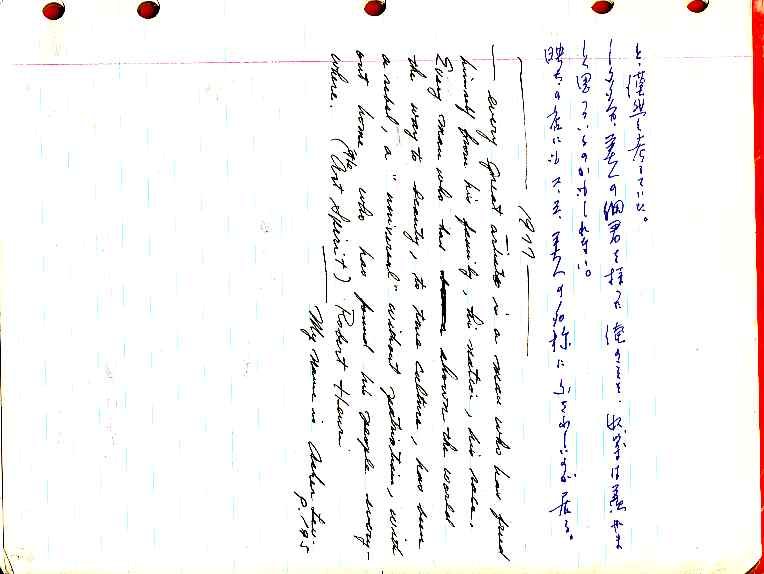 と、漠然と考えていた。
美人の細君を持った俺のことを、
しく思っているのかもしれない。
美人の名称にふさわしいのが居る。
1977
— every great artist is a man who has freed
himself from his family, his nation, his race.
Every man who has shown the world
the way to beauty, to true culture, has been
a rebel, a "universal" without patriotism, with
out home, who has found his people every-
where. (The Art Spirit) Robert Henri
My name is Asher Lev.
p. 195